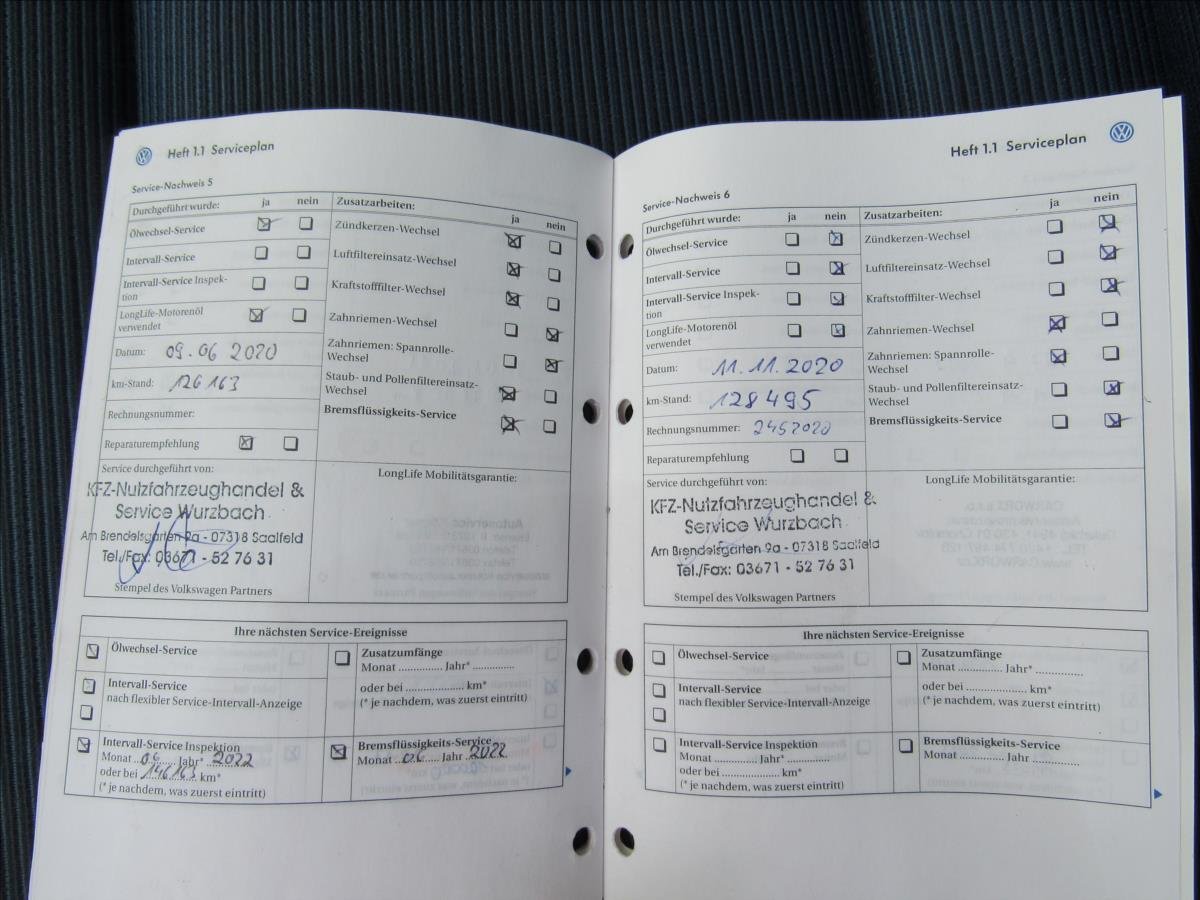 Heft 1.1 Serviceplan
Service-Nachweis 5
Durchgeführt wurde: ja nein
Ölwechsel-Service
Intervall-Service
Intervall-Service Inspek-
tion
LongLife-Motorenöl
verwendet
Datum: 09.06 2020
km-Stand: 126163
Rechnungsnummer:
Reparaturempfehlung
Zusatzarbeiten: ja nein
Zündkerzen-Wechsel
Luftfiltereinsatz-Wechsel
Kraftstofffilter-Wechsel
Zahnriemen-Wechsel
Zahnriemen: Spannrolle-
Wechsel
Staub- und Pollenfiltereinsatz-
Wechsel
Bremsflüssigkeits-Service
Service durchgeführt von:
KFZ-Nutzfahrzeughandel &
Service Wurzbach
Am Brendelsgarten 9a - 07318 Saalfeld
Tel./Fax: 03671 - 52 76 31
Stempel des Volkswagen Partners
LongLife Mobilitätsgarantie:
Ihre nächsten Service-Ereignisse
Ölwechsel-Service
Intervall-Service
nach flexibler Service-Intervall-Anzeige
Intervall-Service Inspektion
Monat 06 Jahr* 2022
oder bei 146163 km*
(* je nachdem, was zuerst eintritt)
Zusatzumfänge
Monat .............. Jahr* ..............
oder bei .................... km*
(* je nachdem, was zuerst eintritt)
Bremsflüssigkeits-Service
Monat 06 Jahr 2022
Heft 1.1 Serviceplan
Service-Nachweis 6
Durchgeführt wurde: ja nein
Ölwechsel-Service
Intervall-Service
Intervall-Service Inspek-
tion
LongLife-Motorenöl
verwendet
Datum: 11.11.2020
km-Stand: 128495
Rechnungsnummer: 2452020
Reparaturempfehlung
Zusatzarbeiten: ja nein
Zündkerzen-Wechsel
Luftfiltereinsatz-Wechsel
Kraftstofffilter-Wechsel
Zahnriemen-Wechsel
Zahnriemen: Spannrolle-
Wechsel
Staub- und Pollenfiltereinsatz-
Wechsel
Bremsflüssigkeits-Service
Service durchgeführt von:
KFZ-Nutzfahrzeughandel &
Service Wurzbach
Am Brendelsgarten 9a - 07318 Saalfeld
Tel./Fax: 03671 - 52 76 31
Stempel des Volkswagen Partners
LongLife Mobilitätsgarantie:
Ihre nächsten Service-Ereignisse
Ölwechsel-Service
Intervall-Service
nach flexibler Service-Intervall-Anzeige
Intervall-Service Inspektion
Monat .............. Jahr* ..............
oder bei .................... km*
(* je nachdem, was zuerst eintritt)
Zusatzumfänge
Monat .............. Jahr* ..............
oder bei .................... km*
(* je nachdem, was zuerst eintritt)
Bremsflüssigkeits-Service
Monat .............. Jahr ..............